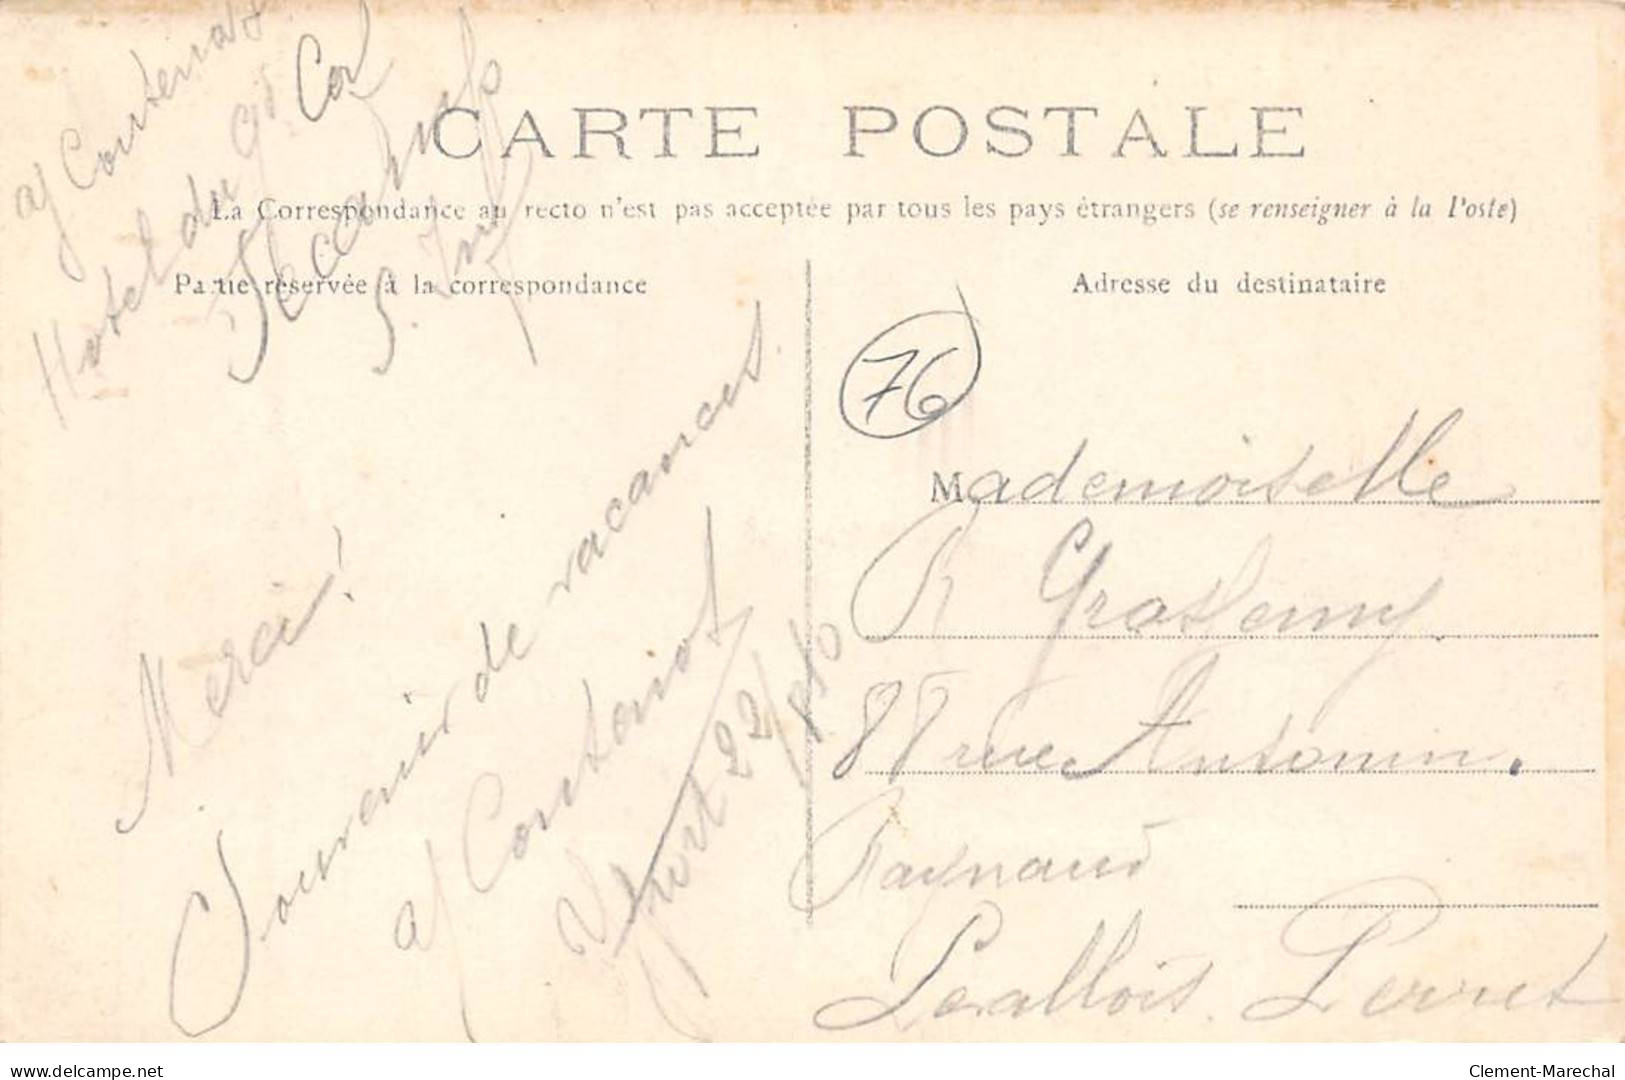 Hotel du gd Cerf
Fécamp
S. Inf
CARTE POSTALE
La Correspondance au recto n'est pas acceptée par tous les pays étrangers (se renseigner à la Poste)
Partie réservée à la correspondance
Adresse du destinataire
76
Merci!
Souvenir de vacances
22/8/10
Mademoiselle
R
88 rue Antonin.
Raynaud
Levallois. Perret
www.delcampe.net
Clement-Marechal